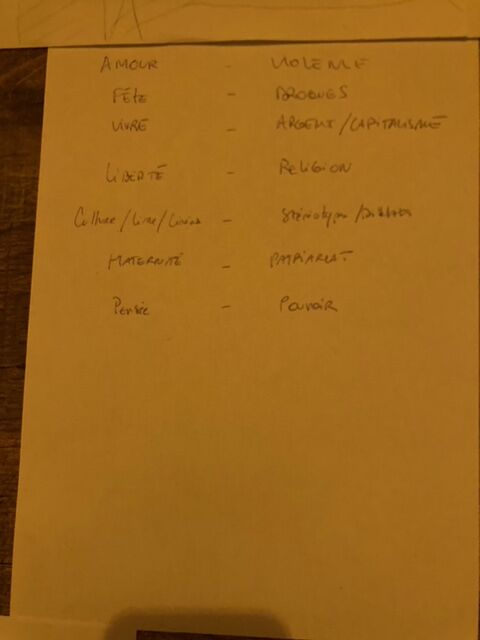 AMOUR - VIOLENCE
FÊTE - DROGUES
VIVRE - ARGENT/CAPITALISME
LIBERTÉ - RELIGION
Culture/Livre/ - Stéréotypes/
MATERNITÉ - PATRIARCAT
Pensée - Pouvoir